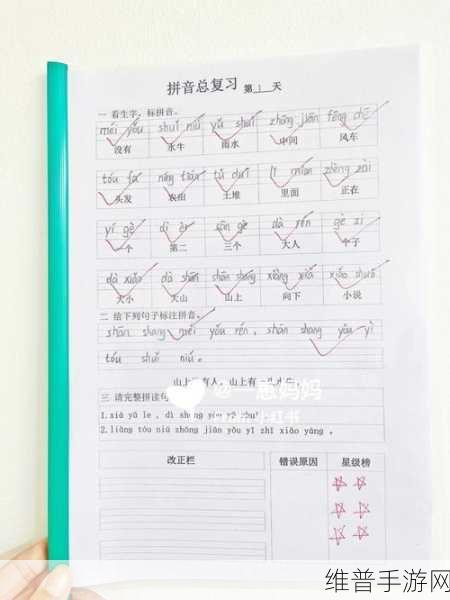 拼音总复习 第 1 天
一 看生字，标拼音。
méi yǒu shuǐ niú yǔ shuǐ zhōng jiān fēng chē
没有 水牛 雨水 中间 风车
tóu fa nóng tián tǔ duī lǐ miàn zhèng zài
头发 农田 土堆 里面 正在
yí gè dì èr sān gè dà rén gè zi
一个 第二 三个 大人 个子
dà xiǎo dà shān shān shang xiàng xià xiǎo shuō
大小 大山 山上 向下 小说
二 给下列句子标注拼音。
shān shang méi yǒu rén, shān shang yǒu yì
tóu shuǐ niú 。
山上 有人，山上有一头水牛
三 请完整拼读句
1.xià yǔ le , dì shang yǒu
2.liǎng tóu niú zhōng jiān yǒu yī zhī xiǎo yáng 。
改正栏 错误原因 星级榜
一恩妈妈
小红书
维普手游网